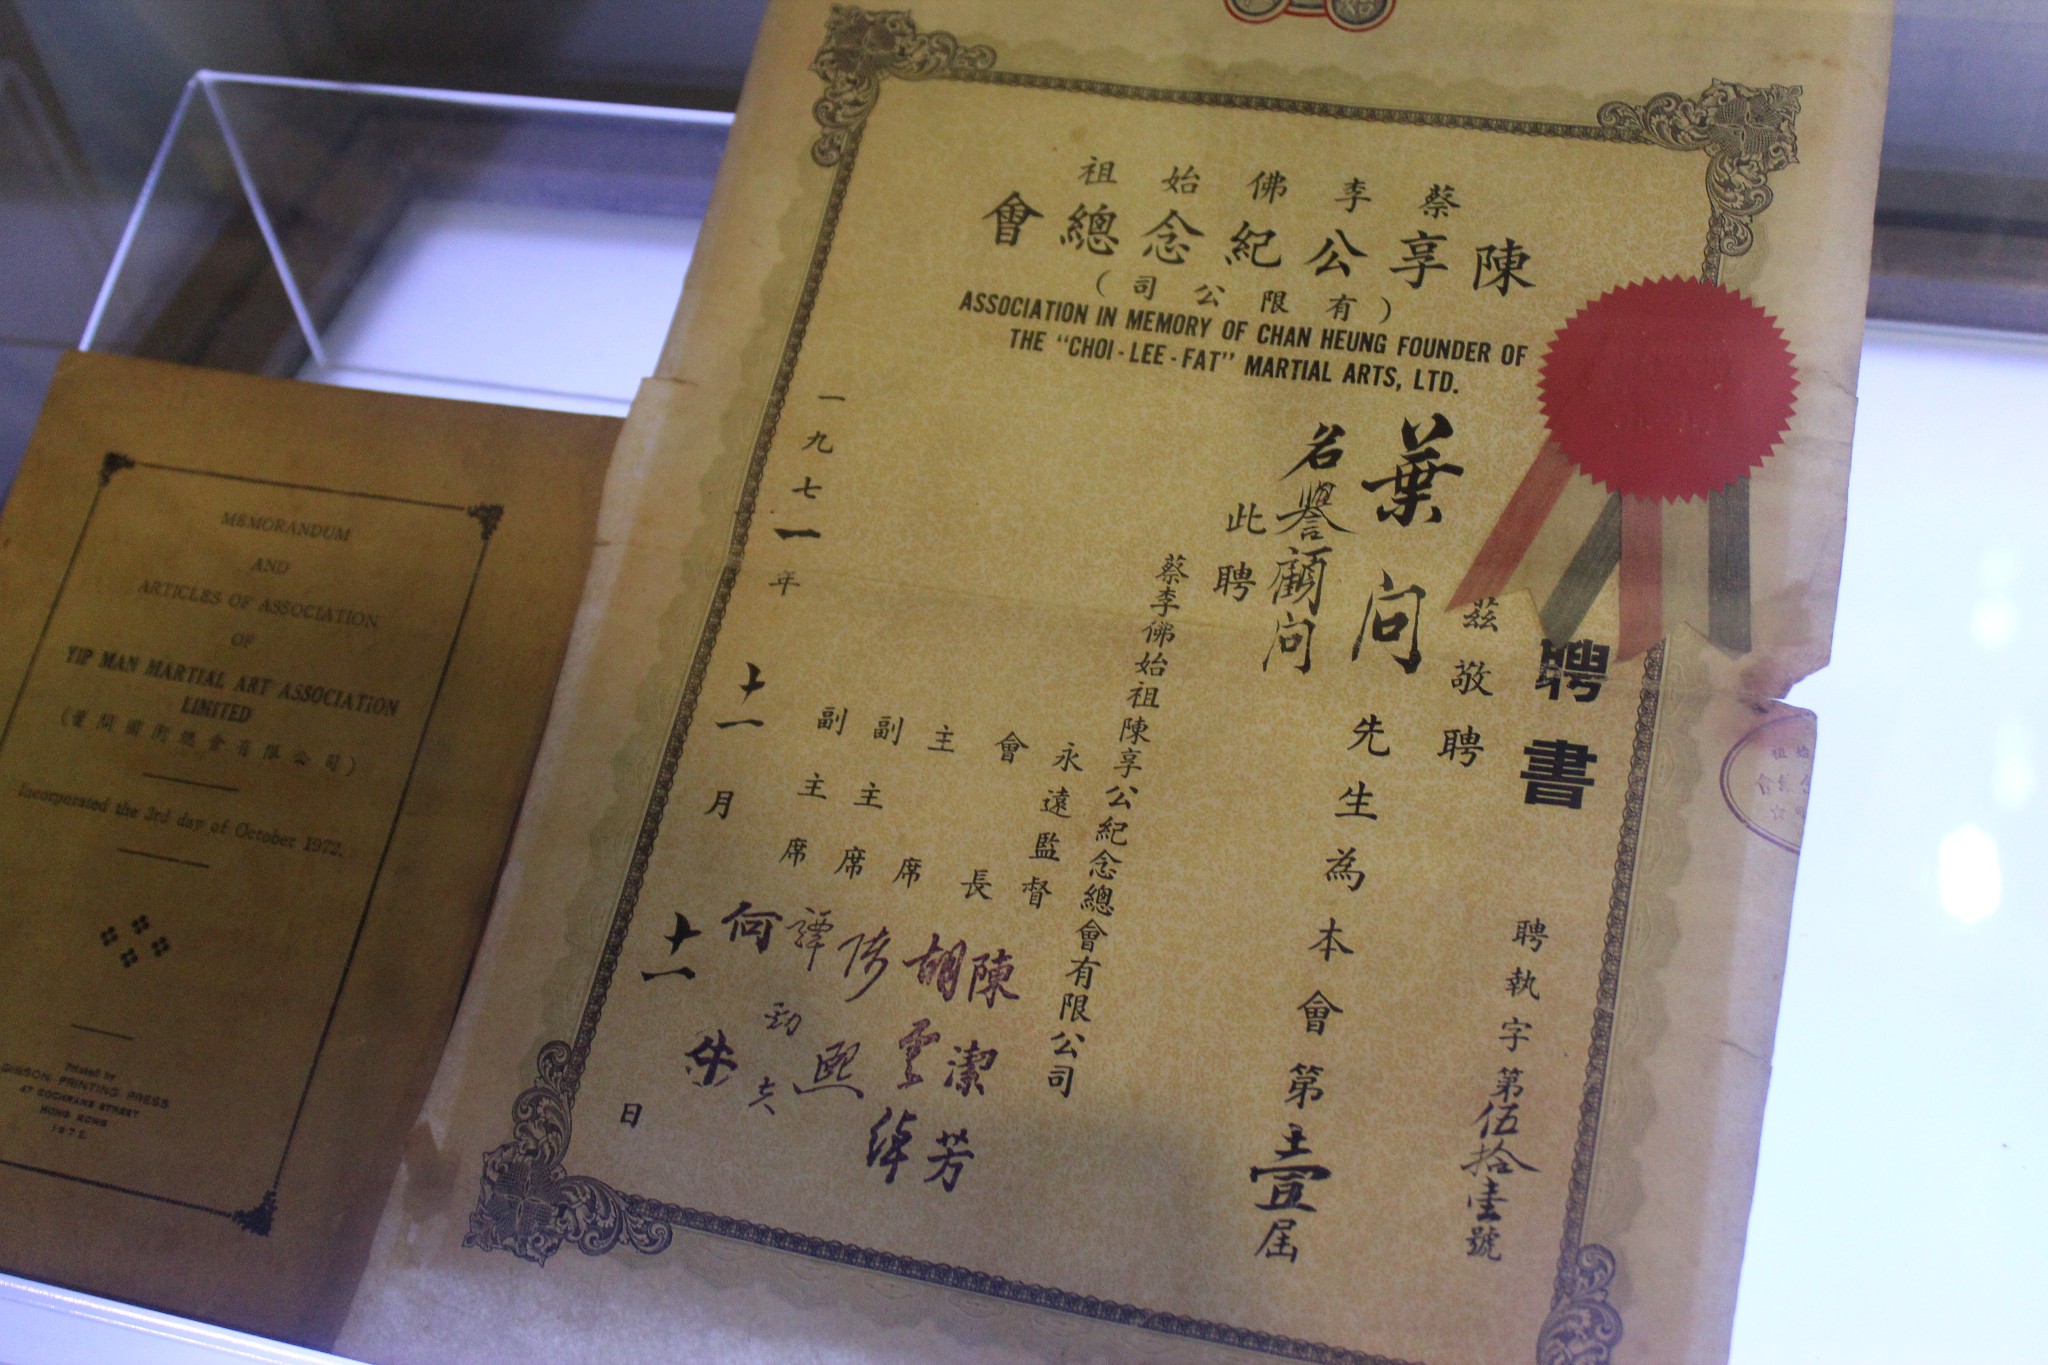 蔡李佛始祖
陳享公紀念總會
(有限公司)
ASSOCIATION IN MEMORY OF CHAN HEUNG FOUNDER OF
THE "CHOI-LEE-FAT" MARTIAL ARTS, LTD.
聘書
聘執字第伍拾壹號
茲敬聘
葉問先生為本會第壹屆
名譽顧問
此聘
蔡李佛始祖陳享公紀念總會有限公司
永遠監督 陳潔芳
會長 胡雲綽
主席
副主席 譚
副主席 何
一九七一年十一月十一日
MEMORANDUM
AND
ARTICLES OF ASSOCIATION
OF
YIP MAN MARTIAL ART ASSOCIATION
LIMITED
(葉問國術總會有限公司)
Incorporated the 3rd day of October 1972.
Printed by
GIBSON PRINTING PRESS
47 COCHRANE STREET
HONG KONG
1972